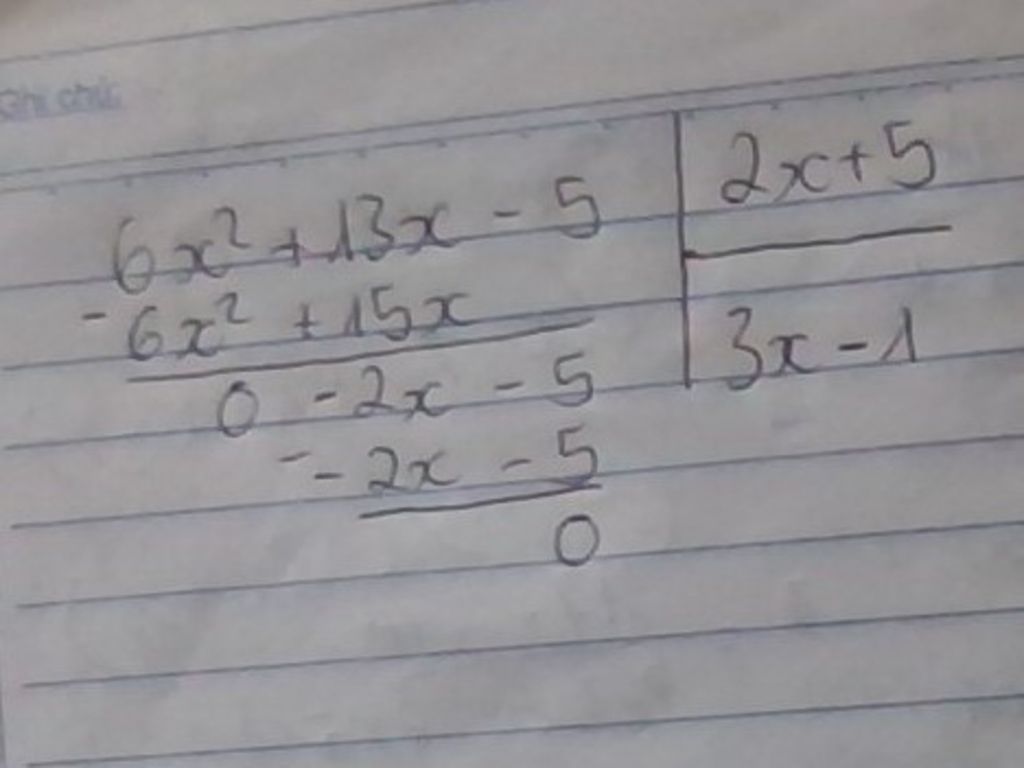 Ghi chú:
6x² + 13x - 5 | 2x + 5
- 6x² + 15x
3x - 1
0 - 2x - 5
- - 2x - 5
0